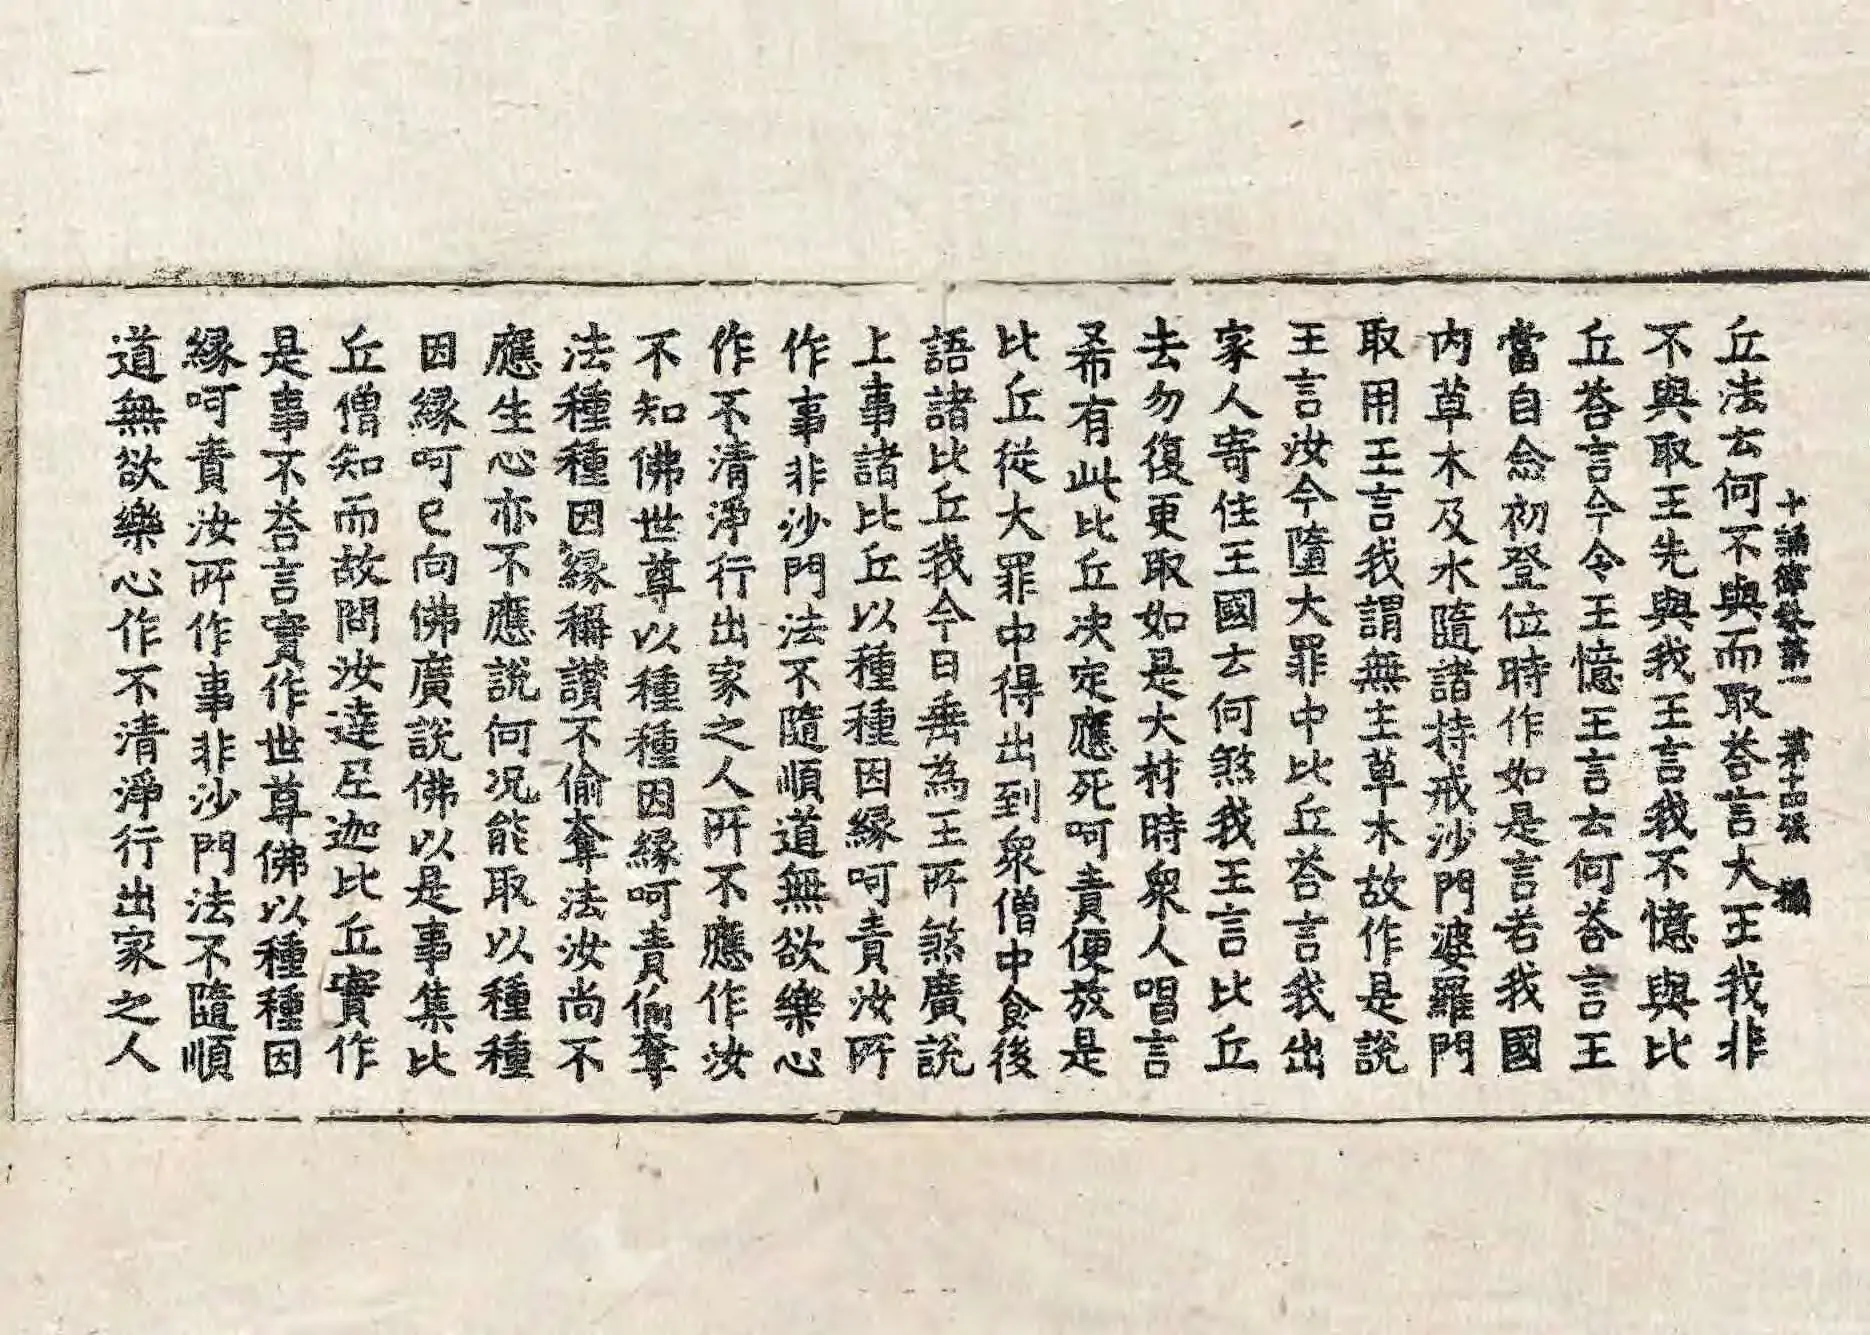 十誦律卷第一　第十四張　攝
丘法云何不與而取荅言大王我非
不與取王先與我王言我不憶與比
丘荅言今令王憶王言云何荅言王
當自念初登位時作如是言若我國
内草木及水隨諸持戒沙門婆羅門
取用王言我謂無主草木故作是說
王言汝今墮大罪中比丘荅言我出
家人寄住王國云何煞我王言比丘
去勿復更取如是大材時衆人唱言
希有此比丘决定應死呵責便放是
比丘從大罪中得出到衆僧中食後
語諸比丘我今日垂為王所煞廣說
上事諸比丘以種種因縁呵責汝所
作事非沙門法不隨順道無欲樂心
作不清淨行出家之人所不應作汝
不知佛世尊以種種因縁呵責偷奪
法種種因縁稱讃不偷奪法汝尚不
應生心亦不應說何况能取以種種
因縁呵已向佛廣說佛以是事集比
丘僧知而故問汝達尼迦比丘實作
是事不荅言實作世尊佛以種種因
縁呵責汝所作事非沙門法不隨順
道無欲樂心作不清淨行出家之人